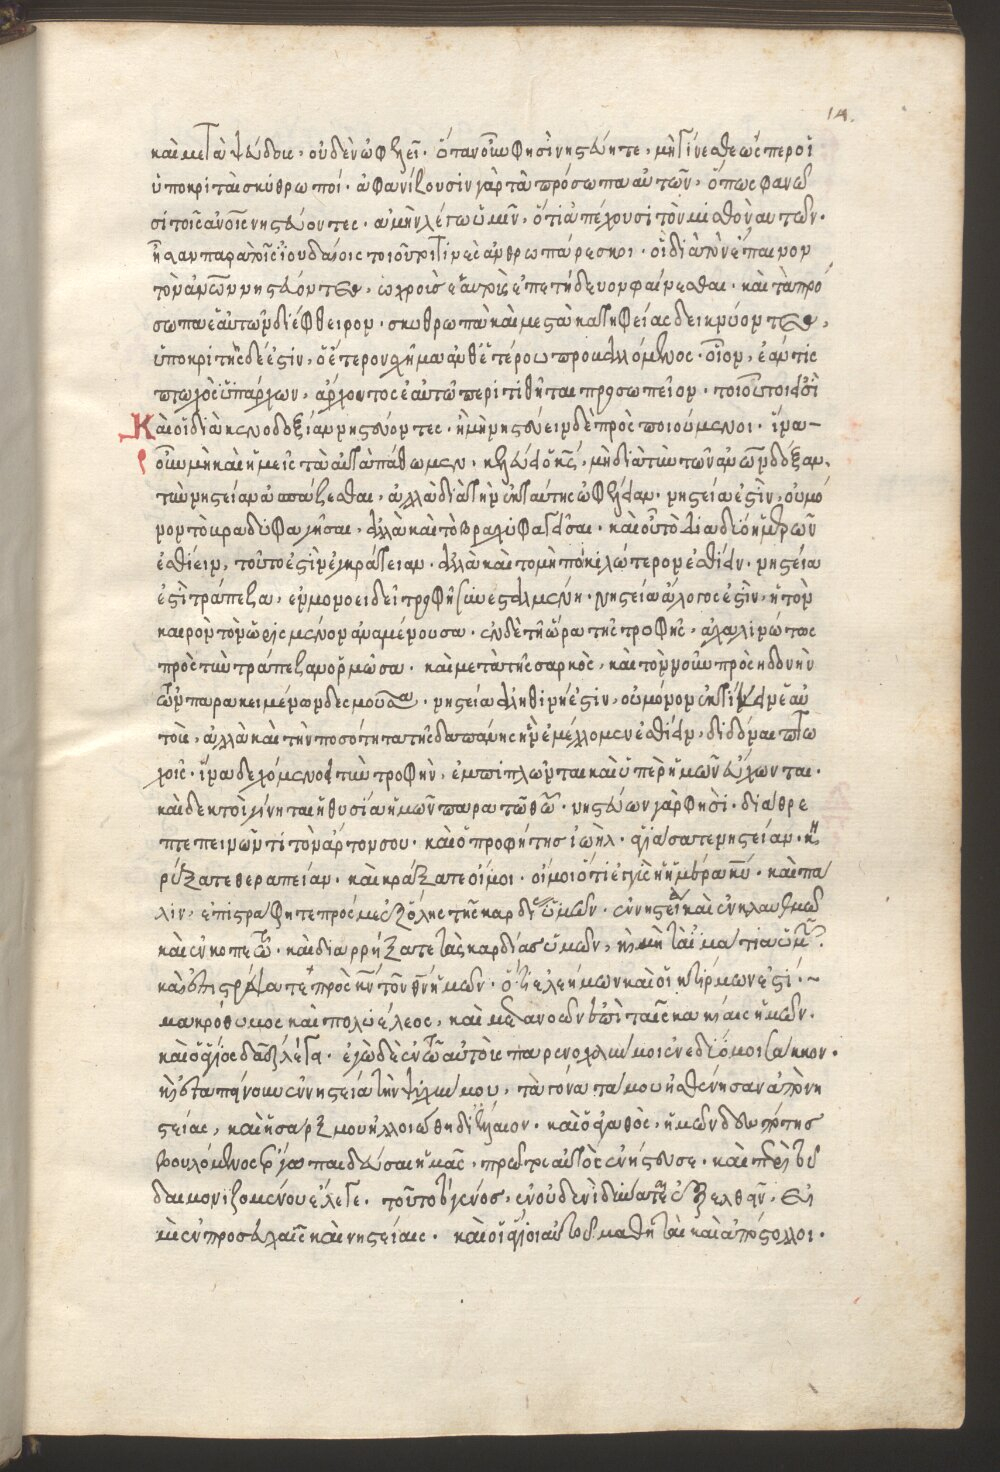 14.
καὶ μετὰ ψεύδους, οὐδὲν ὠφελεῖ. ὅταν οὖν φησὶ νηστεύητε, μὴ γίνεσθε ὥσπερ οἱ
ὑποκριταὶ σκυθρωποί. ἀφανίζουσιν γὰρ τὰ πρόσωπα αὐτῶν, ὅπως φανῶ
σι τοῖς ἀνοις νηστεύοντες. ἀμὴν λέγω ὑμῖν, ὅτι ἀπέχουσι τὸν μισθὸν αὐτῶν.
ἦσαν παρὰ τοῖς ἰουδαίοις τοιοῦτοι τινες ἀνθρωπάρεσκοι. οἳ διὰ τὸν ἔπαινον
τὸν ἀνῶν νηστεύοντες, ὠχροὺς ἑαυτοὺς ἐπετήδευον φαίνεσθαι. καὶ τὰ πρό
σωπα ἑαυτῶν διέφθειρον. σκυθρωπὰ καὶ μεστὰ κατηφείας δεικνύοντες,
ὑποκριτὴς δέ ἐστιν, ὁ ἕτερον σχῆμα ἀνθ' ἑτέρου προβαλλόμενος. οἷον, ἐάν τις
πτωχὸς ὑπάρχων, ἄρχοντος ἑαυτῷ περιτιθῆται προσωπεῖον. τοιοῦτοι εἰσὶ
Καὶ οἱ διὰ κενοδοξίαν νηστεύοντες. ἢ μὴ νηστεύειν δὲ προσποιούμενοι. ἵνα
οὖν μὴ καὶ ἡμεῖς τὰ αὐτὰ πάθωμεν, κελεύει ὁ κς, μὴ διὰ τὴν τῶν ἀνῶν δόξαν,
τὴν νηστείαν ἀσπάζεσθαι, ἀλλὰ διὰ τὴν ἐκ ταύτης ὠφέλειαν. νηστεία ἐστὶν, οὐ μό
νον τὸ βραδυφαγῆσαι, ἀλλὰ καὶ τὸ βραχυφαγῆσαι. καὶ οὐ τὸ διὰ δύο ἡμερῶν
ἐσθίειν, τοῦτο ἐστὶν ἐγκράτειαν. ἀλλὰ καὶ το μὴ ποικιλώτερον ἐσθίειν. νηστεία
ἐστὶ τράπεζα, ἑνὶ μονοειδεῖ τροφῇ συνεσταλμένη. νηστεία ἄλογος ἐστὶν, ἡ τὸν
καιρὸν τὸν ὡρισμένον ἀναμένουσα. ἐν δὲ τῇ ὥρα τῆς τροφῆς, ἀχαλινώτως
πρὸς τὴν τράπεζαν ὁρμῶσα. καὶ μετὰ τῆς σαρκὸς, καὶ τὸν νοῦν πρὸς ἡδονὴν
τῶν παρακειμένων δεσμοῦσα. νηστεία ἀληθινή ἐστιν, οὐ μόνον ἐκτήκειν ἑαυ
τοὺς, ἀλλὰ καὶ τὴν ποσότητα τῆς δαπάνης ἣν ἐμέλλομεν ἐσθίειν, διδόναι πτω
χοῖς. ἵνα δεχόμενοι τὴν τροφὴν, ἐμπίπλωνται καὶ ὑπὲρ ἡμῶν εὔχωνται.
καὶ δεκτοὶ γίνηται ἡ θυσία ἡμῶν παρα τῶ θῶ. νηστεύων γὰρ φησὶ, διάθρε
πτε πεινῶντι τὸν ἄρτον σου. καὶ ὁ προφήτης ἰωὴλ. ἁγιάσατε νηστείαν. κη
ρύξατε θεραπείαν. καὶ κράξατε οἴμοι. οἴμοι ὅτι ἐγγὺς ἡ ἡμέρα κυ. καὶ πά
λιν, ἐπιστράφητε πρός με ἐξ ὅλης τῆς καρδίας ὑμῶν. ἐν νηστεία καὶ ἐν κλαυθμῶ
καὶ ἐν κοπετῶ. καὶ διαρρήξατε τὰς καρδίας ὑμῶν, καὶ μὴ τὰ ἱμάτια ὑμῶν.
καὶ ἐπιστράφητε πρὸς κν τὸν θν ἡμῶν. ὅτι ἐλεήμων καὶ οἰκτίρμων ἐστί.
μακρόθυμος καὶ πολυέλεος, καὶ μετανοῶν ἐπὶ ταῖς κακίαις ἡμῶν.
καὶ ὁ ἅγιος δαδ λέγει. ἐγὼ δὲ ἐν τῶ αὐτοὺς παρενοχλεῖν μοι ἐνεδυόμοι σάκκον.
καὶ ἐταπείνουν ἐν νηστεία τὴν ψυχήν μου, τὰ γόνατα μου ἠσθένησαν ἀπὸ νη
στείας, καὶ ἡ σάρξ μου ἠλλοιώθη δι' ἔλαιον. καὶ ὁ ἀγαθὸς, ἡμῶν δεσπότης
βουλόμενος ἔργω παιδεῦσαι ἡμᾶς, πρῶτος αὐτὸς ἐνήστευσε. καὶ περὶ τοῦ
δαιμονιζομένου ἔλεγε. τοῦτο τὸ γένος, ἐν οὐδενὶ δύναται ἐξελθεῖν, εἰ
μὴ ἐν προσευχαῖς καὶ νηστείαις. καὶ οἱ ἅγιοι αὐτοῦ μαθηταὶ καὶ ἀπόστολοι.